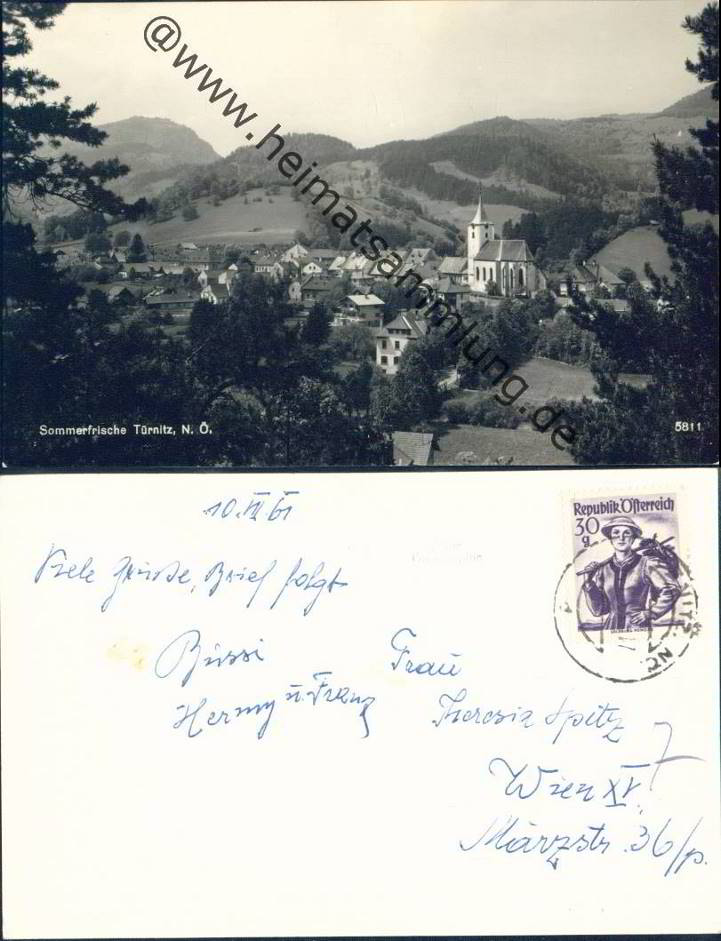 @www.heimatsammlung.de
Sommerfrische Türnitz, N. Ö.
5811
10. VII 61
Republik Österreich
30
g
Viele Grüsse, Brief folgt
Bussi
Hermy u. Franz
Frau
Theresia Spitz
Wien XV.
Märzstr. 36/p.